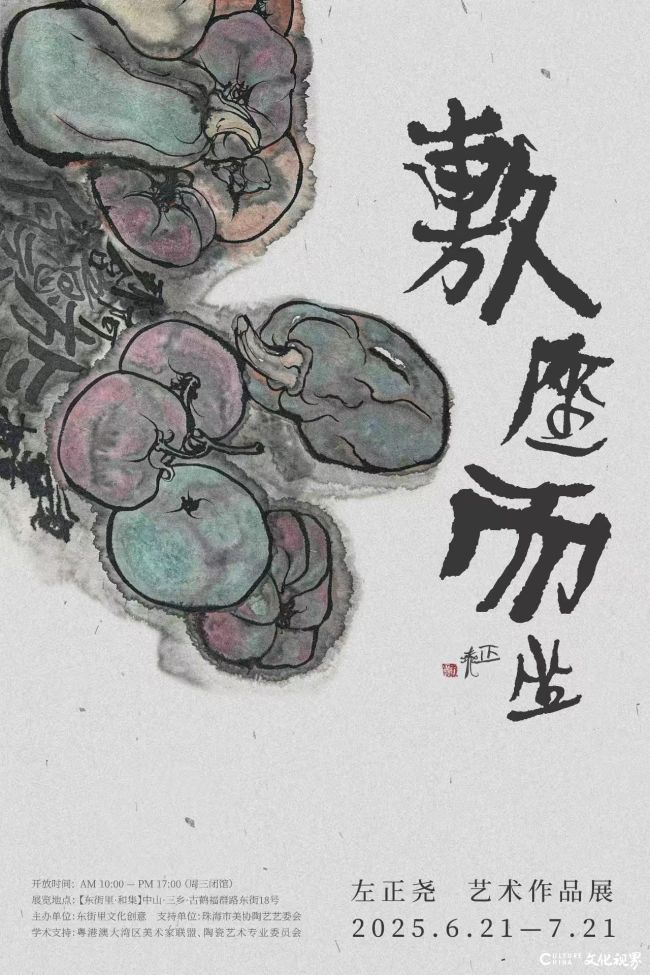 敷座而坐
正尧
开放时间：AM 10:00 — PM 17:00 (周三闭馆)
展览地点：【东街里·和集】中山·三乡·古鹤福群路东街18号
主办单位：东街里文化创意 支持单位：珠海市美协陶艺艺委会
学术支持：粤港澳大湾区美术家联盟、陶瓷艺术专业委员会
左正尧 艺术作品展
2025.6.21—7.21
CULTURE CHINA 文化视界